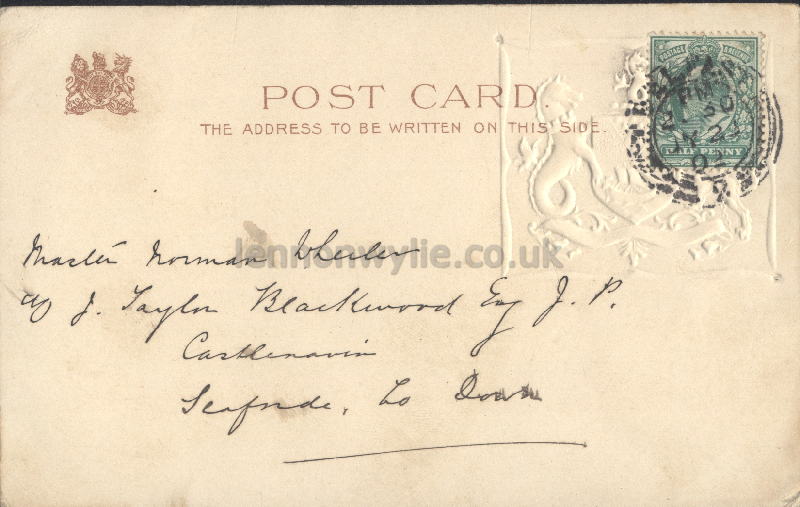 POST CARD.
THE ADDRESS TO BE WRITTEN ON THIS SIDE.
POSTAGE & REVENUE
HALF PENNY
BELFAST
PM
JY 23
02
Master Norman Wheeler
c/o J. Taylor Blackwood Esq J. P.
Castlenavin
Seaforde, Co Down
lennonwylie.co.uk